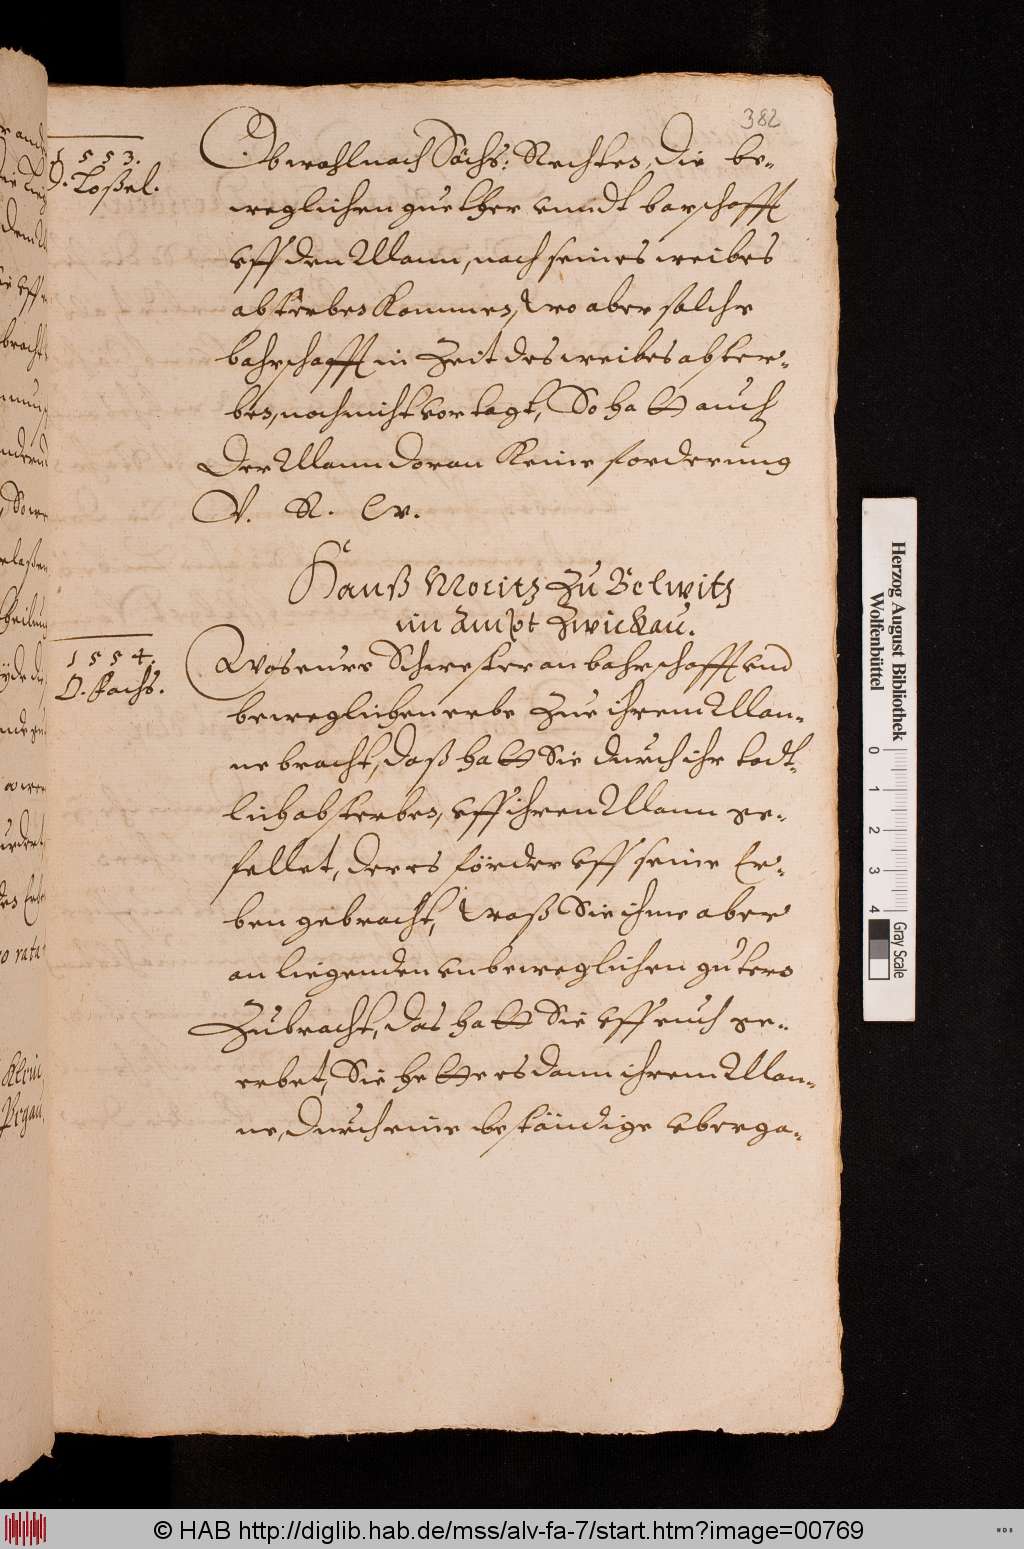 382
1553.
D. Loßel.
Obwohl nach Sächs: Rechten, die be-
weglichen guether vnndt barschafft
vff den Mann, nach seines weibes
absterben kommen, wo aber solche
bahrschafft in Zeit des weibes abster-
ben, noch nicht vortagt, So hatt auch
Der Mann daran keine forderung
V. R. W.
Hanß Moritz zu Belwitz
im Ampt Zwickau.
1554.
D. Fachs.
Was eure Schwester an bahrschafft vnd
beweglichen erbe Zue ihrem Man-
ne bracht, daß hatt Sie durch ihr todt-
lich absterben, vff ihren Mann ge-
fellet, der es förder vff seine Er-
ben gebracht, waß Sie ihme aber
an liegenden vnbeweglichen gütern
Zubracht, das hatt Sie vff euch ge-
erbet, Sie hette es dann ihrem Man-
ne, durch eine beständige vberga-
Herzog August Bibliothek
Wolfenbüttel
0 1 2 3 4
Gray Scale
© HAB http://diglib.hab.de/mss/alv-fa-7/start.htm?image=00769